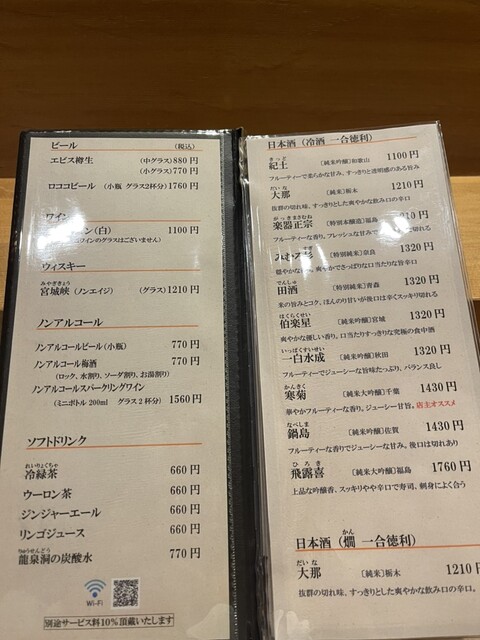 ビール (税込)
エビス樽生 (中グラス) 880円
(小グラス) 770円
ロココビール (小瓶 グラス2杯分) 1760円
ワイン
(白) 1100円
ワインのグラスはございません)
ウィスキー
みやぎきょう
宮城峡 (ノンエイジ) (グラス) 1210円
ノンアルコール
ノンアルコールビール (小瓶) 770円
ノンアルコール梅酒 770円
(ロック、水割り、ソーダ割り、お湯割り)
ノンアルコールスパークリングワイン
(ミニボトル 200ml グラス2杯分) 1560円
ソフトドリンク
れいりょくちゃ
冷緑茶 660円
ウーロン茶 660円
ジンジャーエール 660円
リンゴジュース 660円
りゅうせんどう
龍泉洞の炭酸水 770円
Wi-Fi
別途サービス料10%頂戴いたします
日本酒 (冷酒 一合徳利)
きっど
紀土 〔純米吟醸〕和歌山 1100円
フルーティーで柔らかな甘み、すっきりと透明感のある旨み
だいな
大那 〔純米〕栃木 1210円
抜群の切れ味、すっきりとした爽やかな飲み口の辛口
がっきまさむね
楽器正宗 〔特別本醸造〕福島 210円
フルーティーな香り、フレッシュな甘みで 切れる
みむろ杉 〔特別純米〕奈良 1320円
穏やかな 爽やかでさっぱりな口当たりな旨辛口
でんしゅ
田酒 〔特別純米〕青森 1320円
米の旨みとコク、ほんのり甘いが後口は辛くスッキリ切れる
はくらくせい
伯楽星 〔純米吟醸〕宮城 1320円
爽やかな優しい香り、口当たりすっきりな究極の食中酒
いっぱくすいせい
一白水成 〔純米吟醸〕秋田 1320円
フルーティーでジューシーな旨味たっぷり、バランス良し
かんきく
寒菊 〔純米大吟醸〕千葉 1430円
華やかフルーティーな香り、ジューシー甘旨。店主オススメ
なべしま
鍋島 〔純米吟醸〕佐賀 1430円
フルーティーな香りでジューシーな甘み。後口はあっさり
ひろき
飛露喜 〔純米大吟醸〕福島 1760円
上品な吟醸香、スッキリやや辛口で寿司、刺身によく合う
かん
日本酒 (燗 一合徳利)
だいな
大那 〔純米〕栃木 1210円
抜群の切れ味、すっきりとした爽やかな飲み口の辛口。